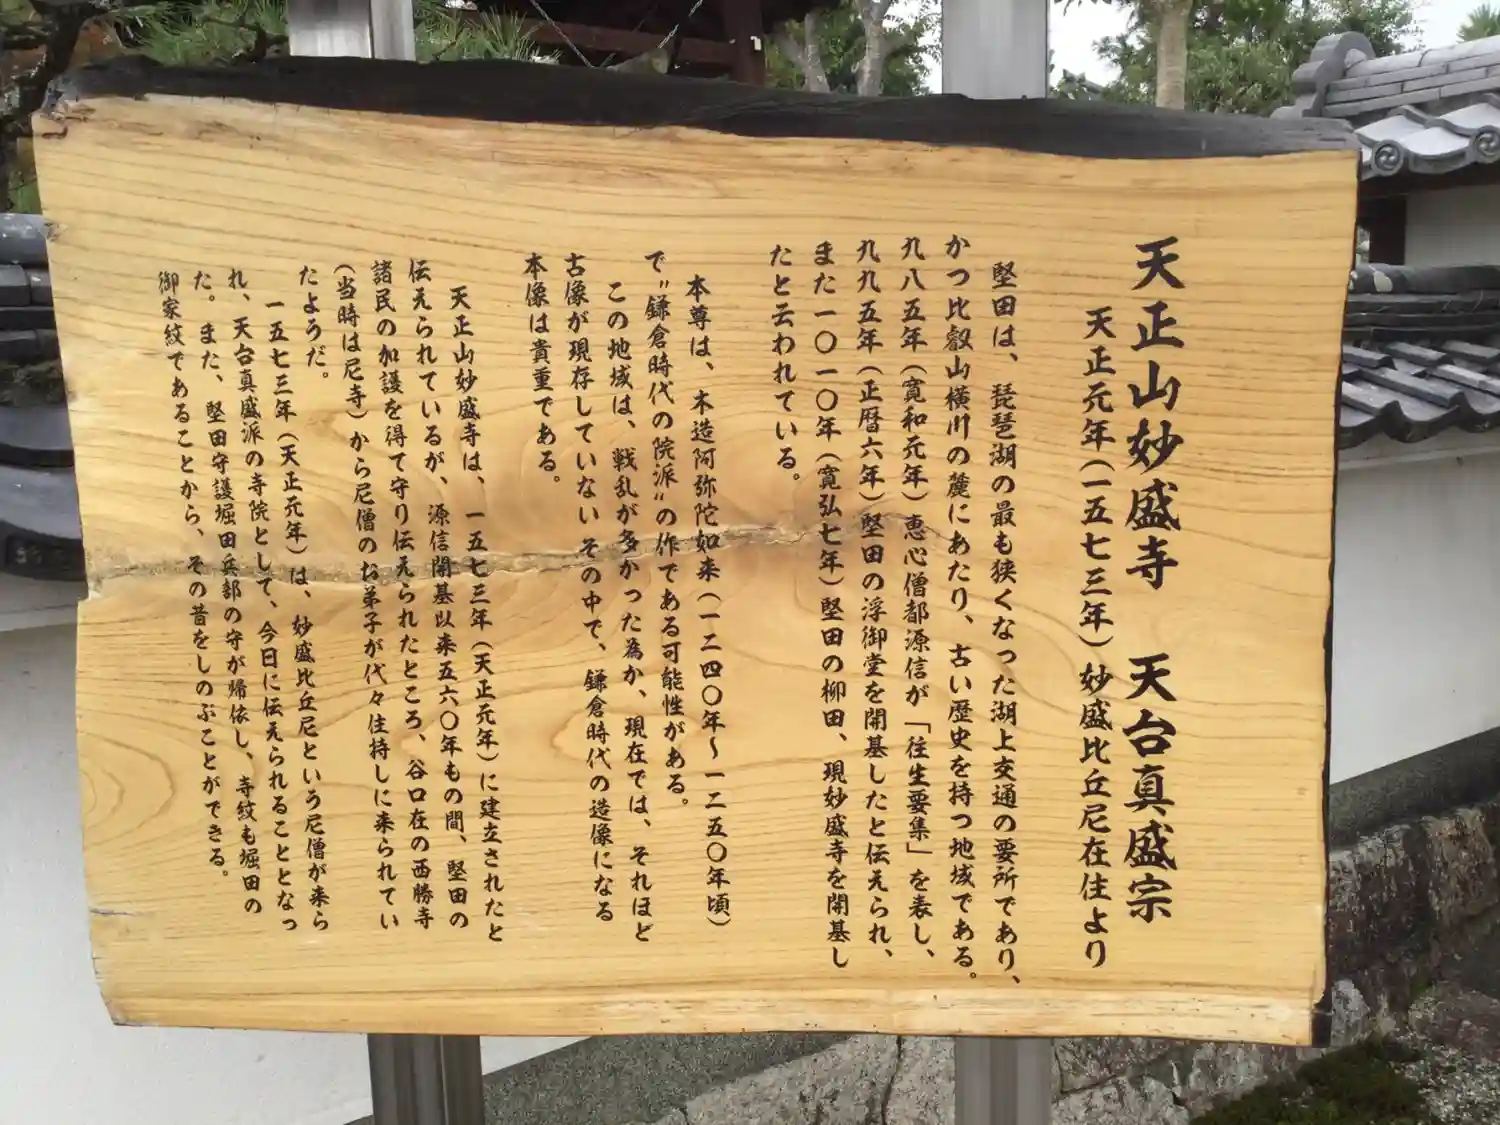 天正山妙盛寺　天台真盛宗
天正元年（一五七三年）妙盛比丘尼在住より
堅田は、琵琶湖の最も狭くなった湖上交通の要所であり、
かつ比叡山横川の麓にあたり、古い歴史を持つ地域である。
九八五年（寛和元年）恵心僧都源信が「往生要集」を表し、
九九五年（正暦六年）堅田の浮御堂を開基したと伝えられ、
また一〇一〇年（寛弘七年）堅田の柳田、現妙盛寺を開基し
たと云われている。
本尊は、木造阿弥陀如来（一二四〇年～一二五〇年頃）
で〝鎌倉時代の院派〟の作である可能性がある。
この地域は、戦乱が多かった為か、現在では、それほど
古像が現存していないその中で、鎌倉時代の造像になる
本像は貴重である。
天正山妙盛寺は、一五七三年（天正元年）に建立されたと
伝えられているが、源信開基以来五六〇年もの間、堅田の
諸民の加護を得て守り伝えられたところ、谷口在の西勝寺
（当時は尼寺）から尼僧のお弟子が代々住持しに来られてい
たようだ。
一五七三年（天正元年）は、妙盛比丘尼という尼僧が来ら
れ、天台真盛派の寺院として、今日に伝えられることとなっ
た。また、堅田守護堀田兵部の守が帰依し、寺紋も堀田の
御家紋であることから、その昔をしのぶことができる。